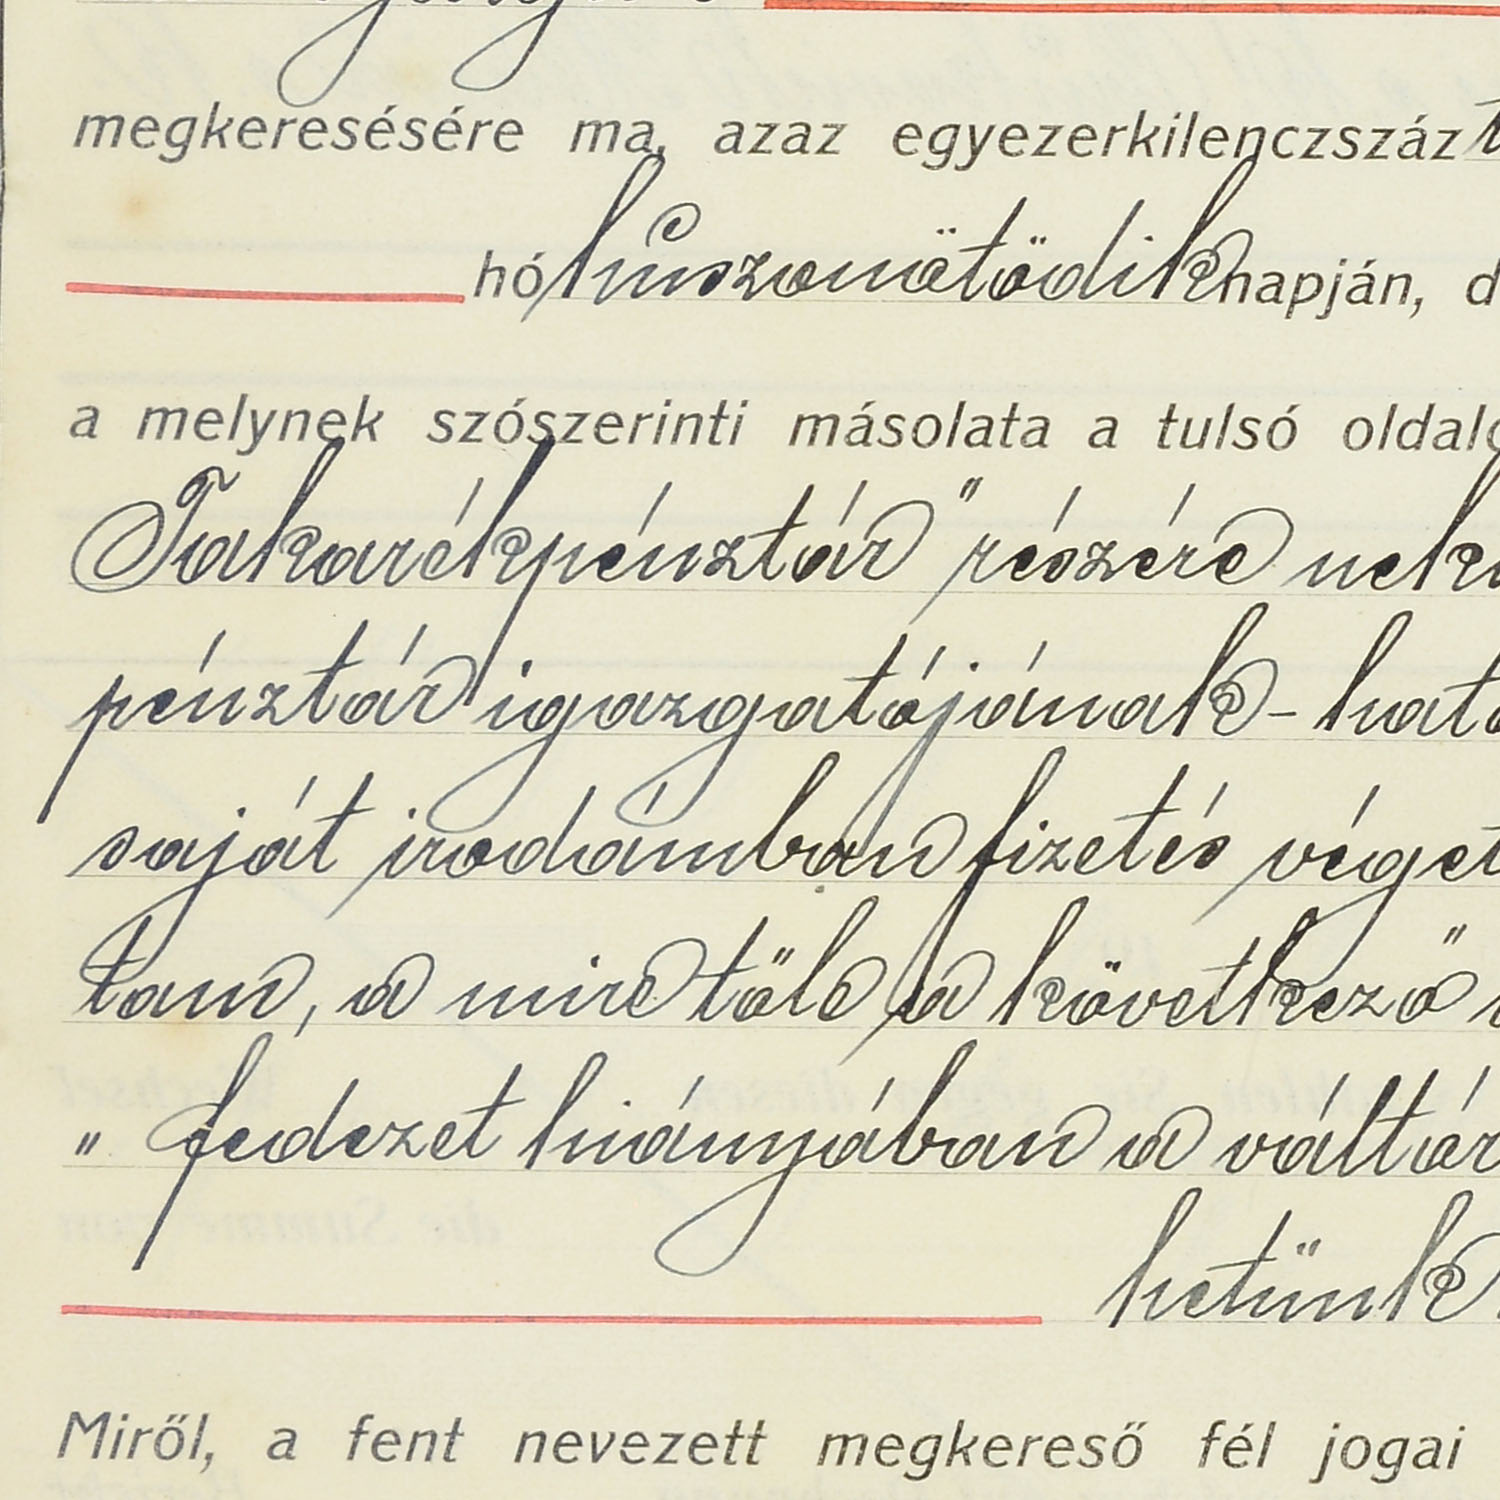 megkeresésére ma, azaz egyezerkilenczszáz
hó huszonötödik napján, d
a melynek szószerinti másolata a tulsó oldalo
Takarékpénztár" részére nekr
pénztár igazgatójának - hata
saját irodámban fizetés véget
tam, a mire tőle a következő
„ fedezet hiányában a váltór
hetünk
Miről, a fent nevezett megkereső fél jogai